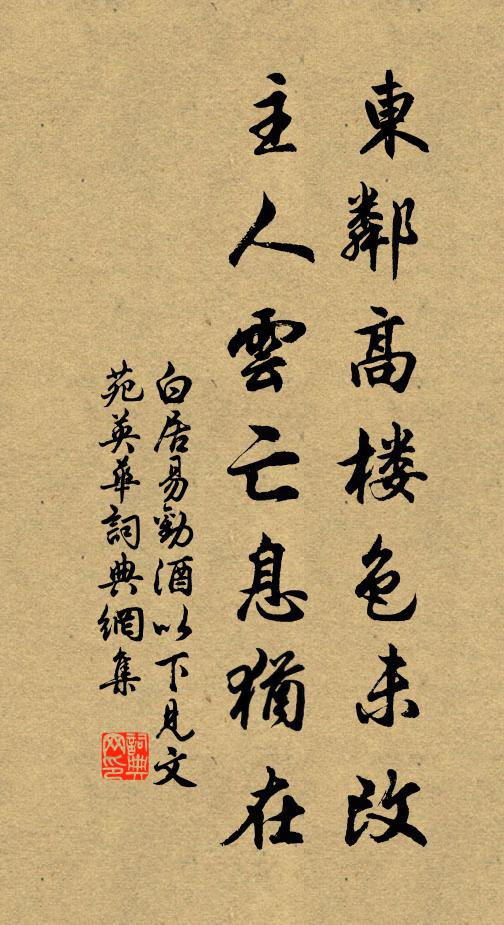 東鄰高楼色未改
主人雲亡息猶在
白居易勸酒以下見文
苑英華詞典網集
詞典
网印